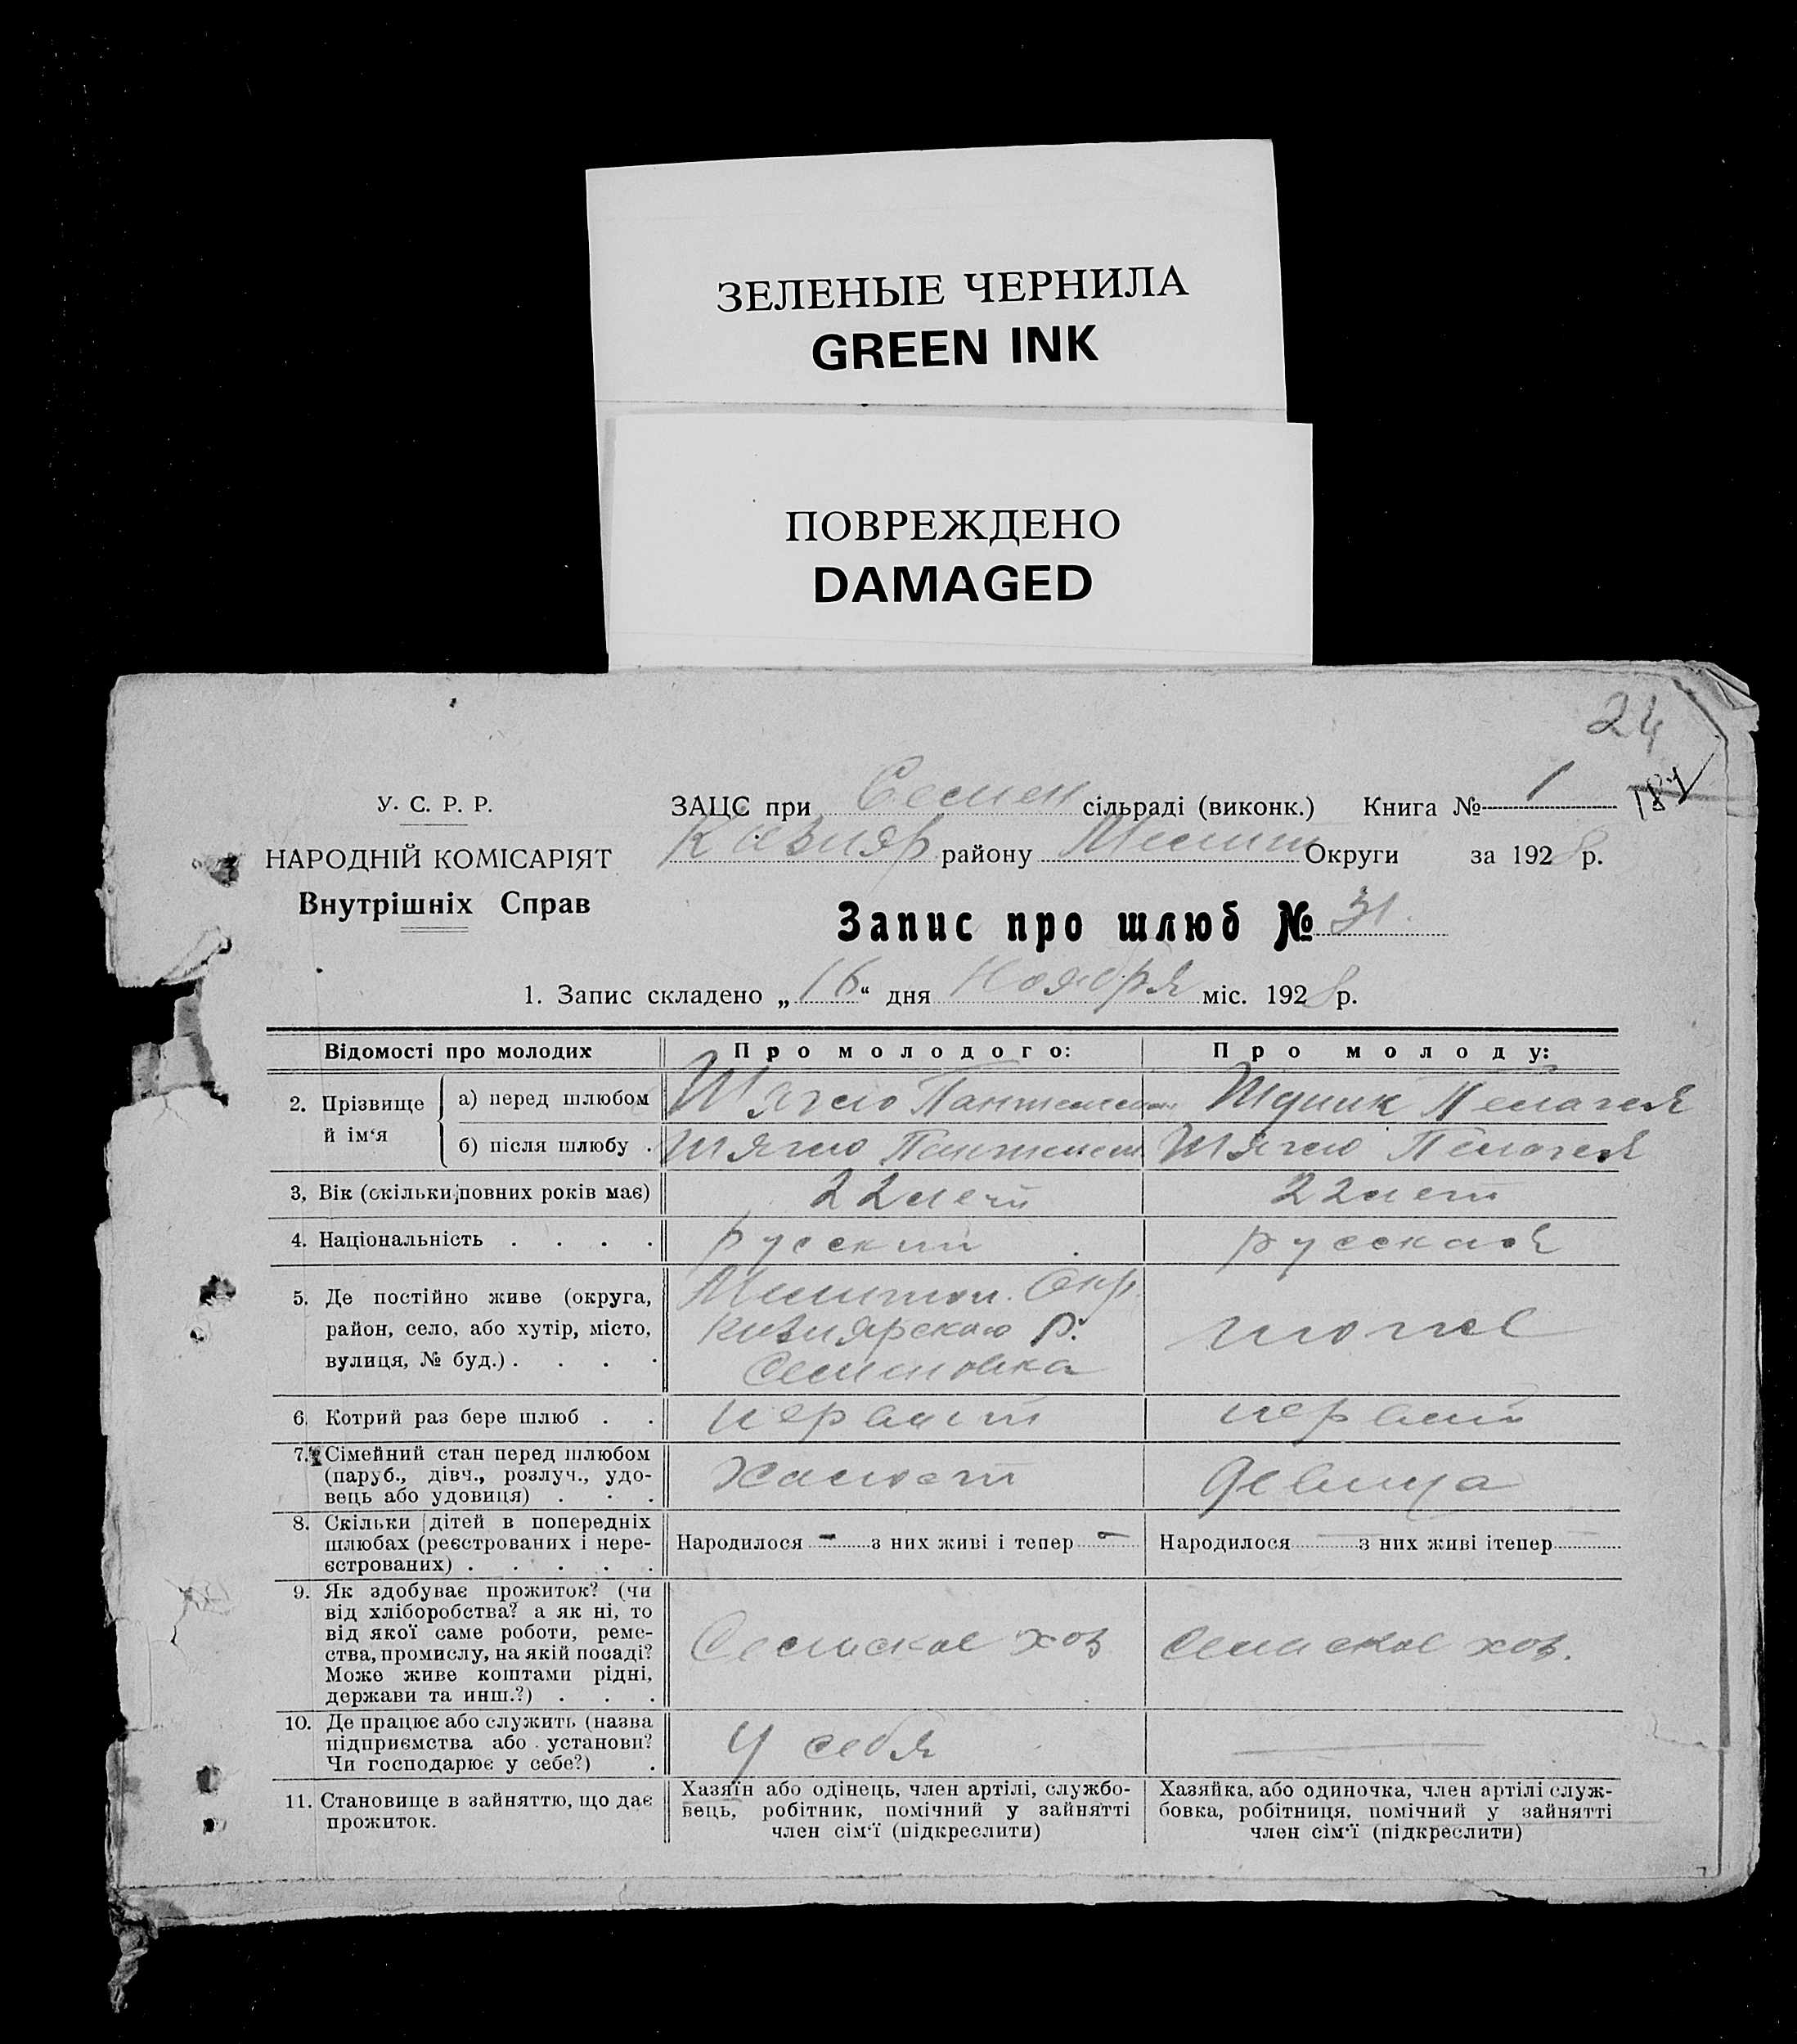 ЗЕЛЕНЫЕ ЧЕРНИЛА
GREEN INK
ПОВРЕЖДЕНО
DAMAGED
24
187
У. С. Р. Р.
НАРОДНІЙ КОМІСАРІЯТ
Внутрішніх Справ
ЗАЦС при Семен сільраді (виконк.) Книга № 1
Кизияр району Мелит Округи за 1928 р.
Запис про шлюб № 31.
1. Запис складено „ 16 “ дня Ноября міс. 1928 р.
Відомості про молодих Про молодого: Про молоду:
2. Прізвище й ім‘я
а) перед шлюбом Шягло Пантелеи Пелагея
б) після шлюбу . Шягло Пантелеи Шягло Пелагея
3, Вік (скільки повних років має) 22 лет 22 лет
4. Національність . . . . русский русская
5. Де постійно живе (округа,
район, село, або хутір, місто,
вулиця, № буд.) . . . .
Мелитоп. Окр.
Кизиярского р.
Семеновка
тоже
6. Котрий раз бере шлюб . . первый первый
7. Сімейний стан перед шлюбом
(паруб., дівч., розлуч., удо-
вець або удовиця) . . .
Холост Девица
8. Скільки дітей в попередніх
шлюбах (реєстрованих і нере-
єстрованих) . . . . .
Народилося - з них живі і тепер - Народилося - з них живі ітепер -
9. Як здобуває прожиток? (чи
від хліборобства? а як ні, то
від якої саме роботи, реме-
ства, промислу, на якій посаді?
Може живе коштами рідні,
держави та инш.?) . . .
Сельское хоз Сельское хоз.
10. Де працює або служить (назва
підприємства або установи?
Чи господарює у себе?) .
У себя —
11. Становище в зайняттю, що дає
прожиток.
Хазяїн або одінець, член артілі, службо-
вець, робітник, помічний у зайнятті
член сім‘ї (підкреслити)
Хазяйка, або одиночка, член артілі служ-
бовка, робітниця, помічний у зайнятті
член сім‘ї (підкреслити)